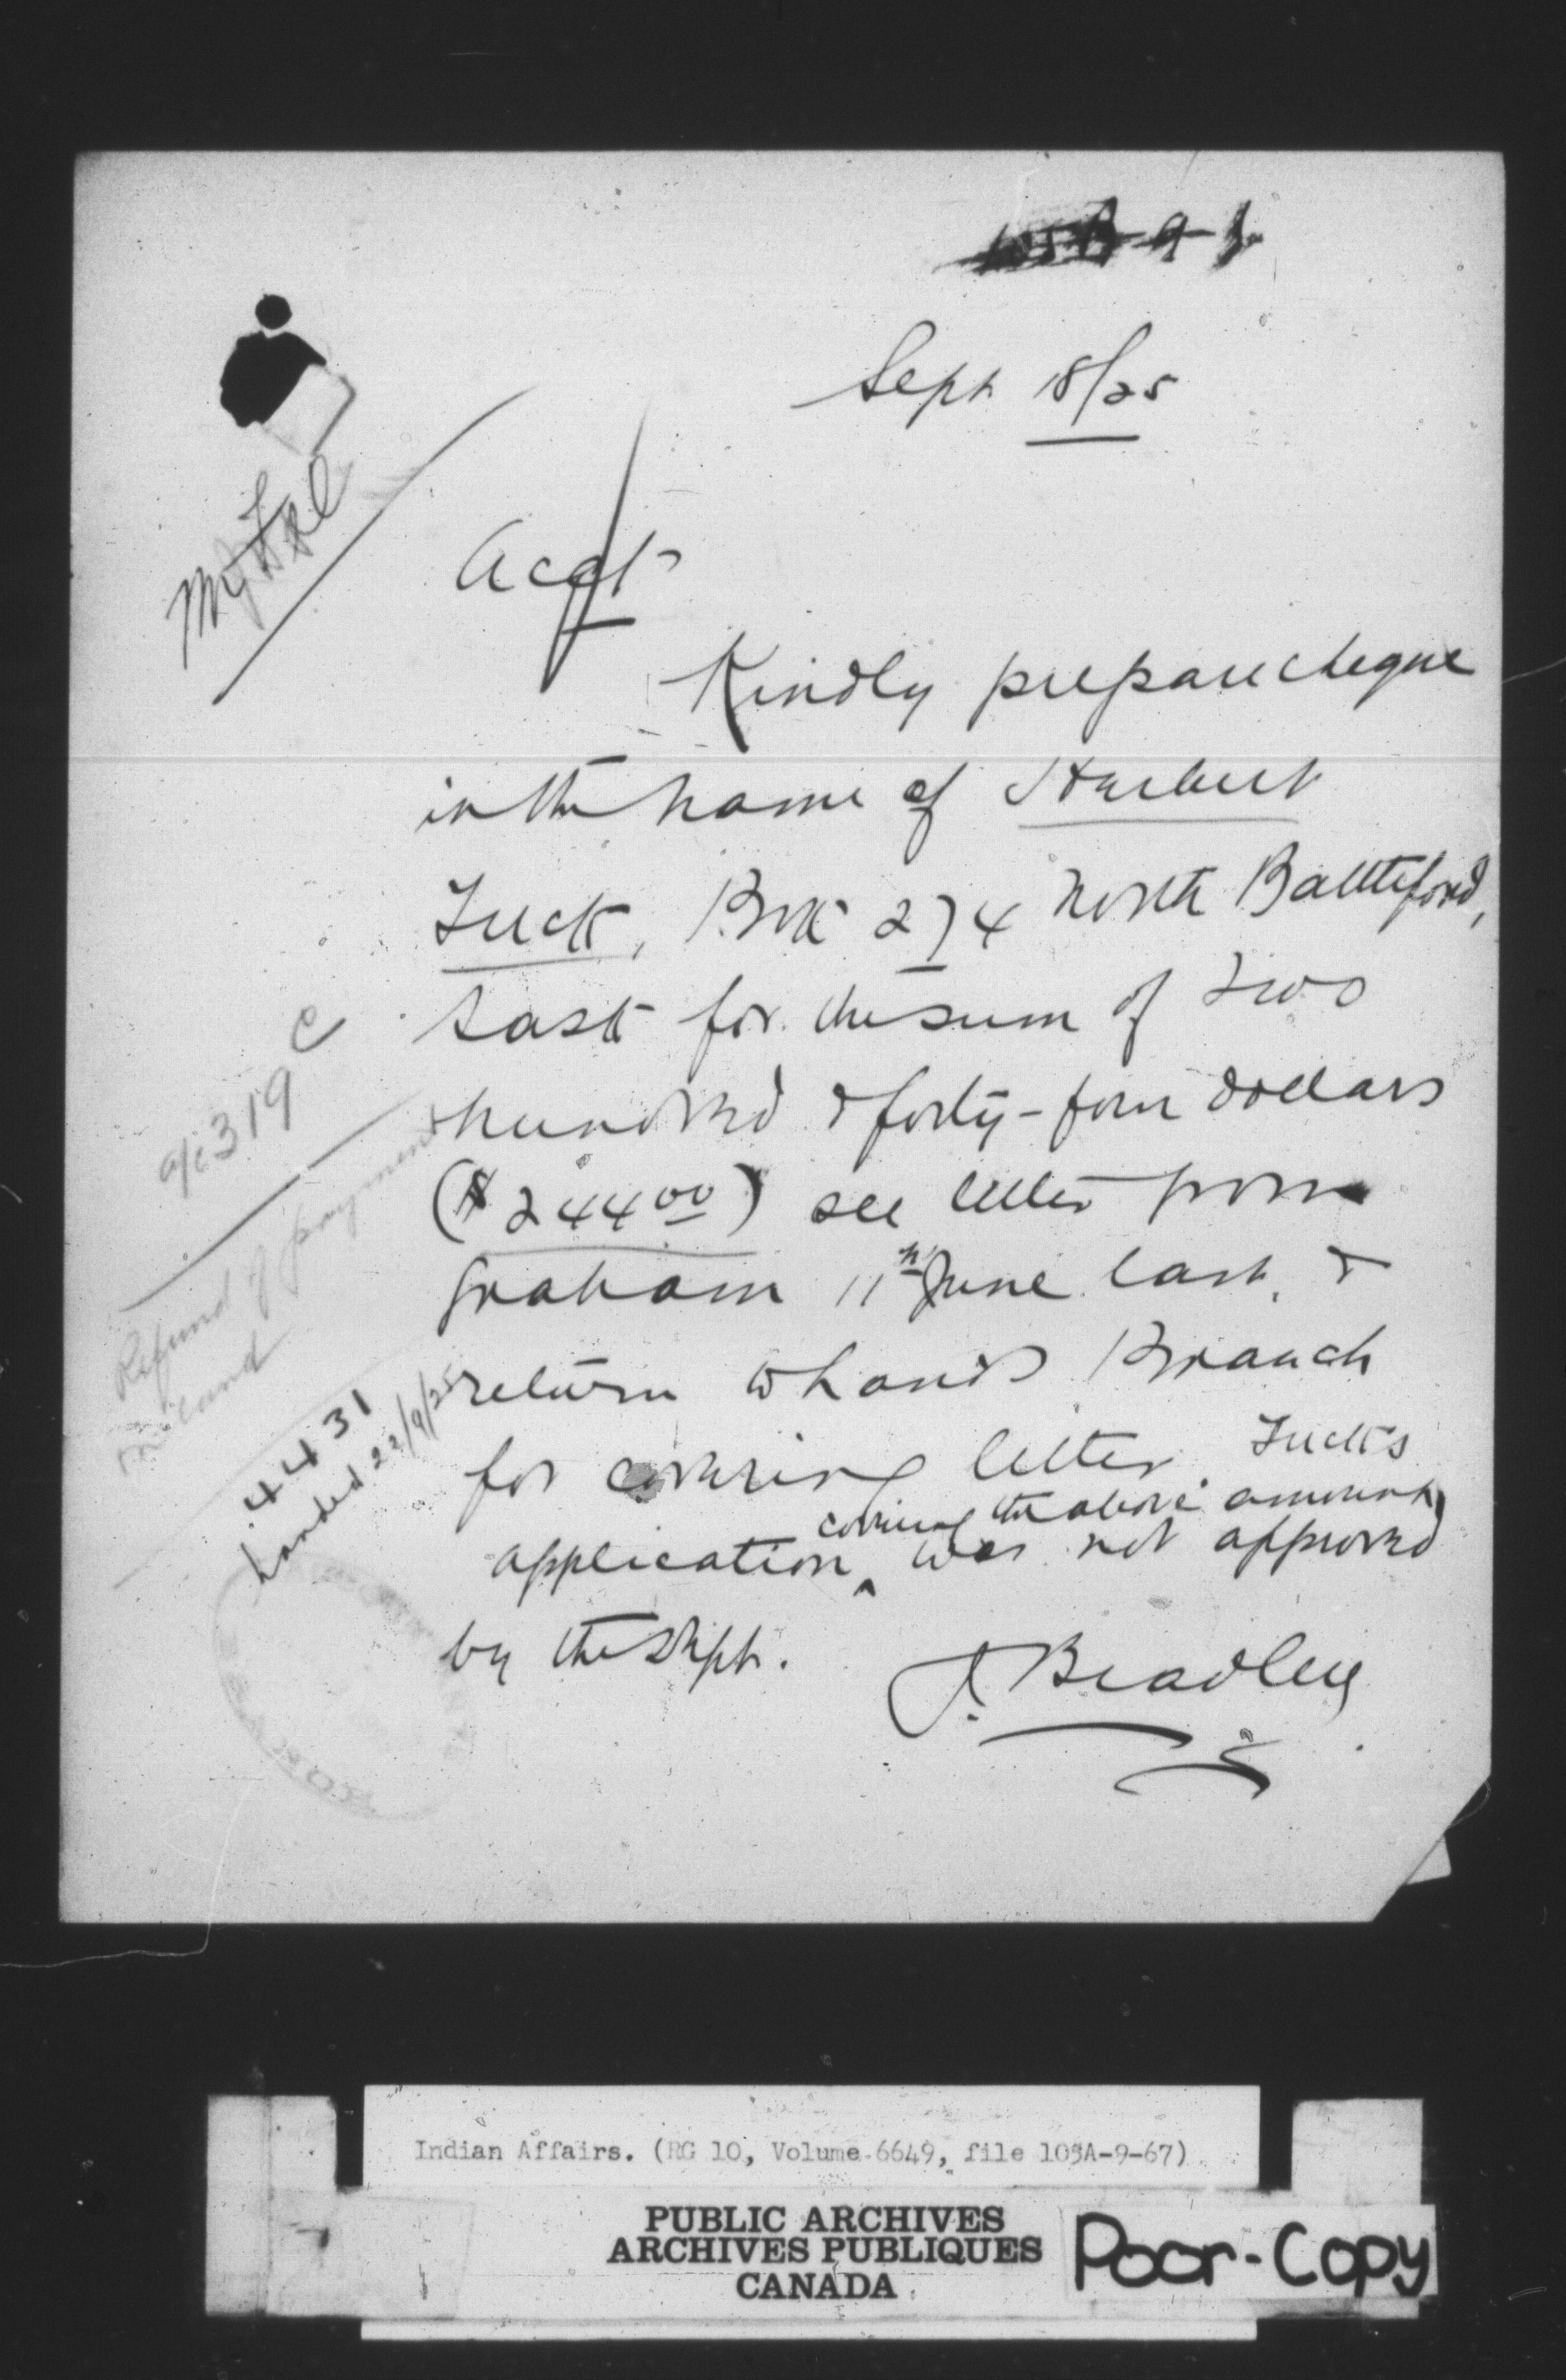 Sept 18/25
Acct
Kindly prepare cheque
in the name of Herbert
Tuck, Box 274 North Battleford,
Sask for the sum of Two
hundred & forty-four dollars
($244 00) see letter from
Graham 11th June last, &
return to Lands Branch
for covering letter. Tuck's
covering the above amount
application ^ was not approved
by the Dept.
J. Bradley
a/c 319 C
Refund of payment
on land
4431
handed 22/9/25
Indian Affairs. (RG 10, Volume 6649, file 105A-9-67)
PUBLIC ARCHIVES
ARCHIVES PUBLIQUES
CANADA
Poor-Copy